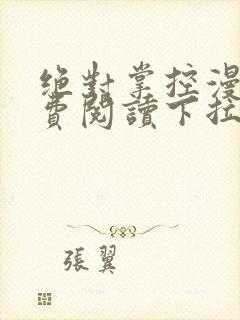 絶對掌控漫
費閱讀下拉
張翼